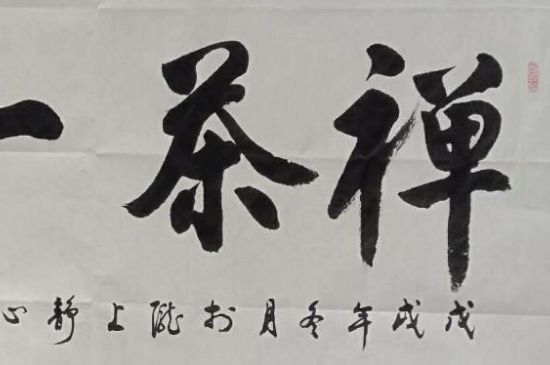 禅茶一
戊戌年冬月於陇上静心